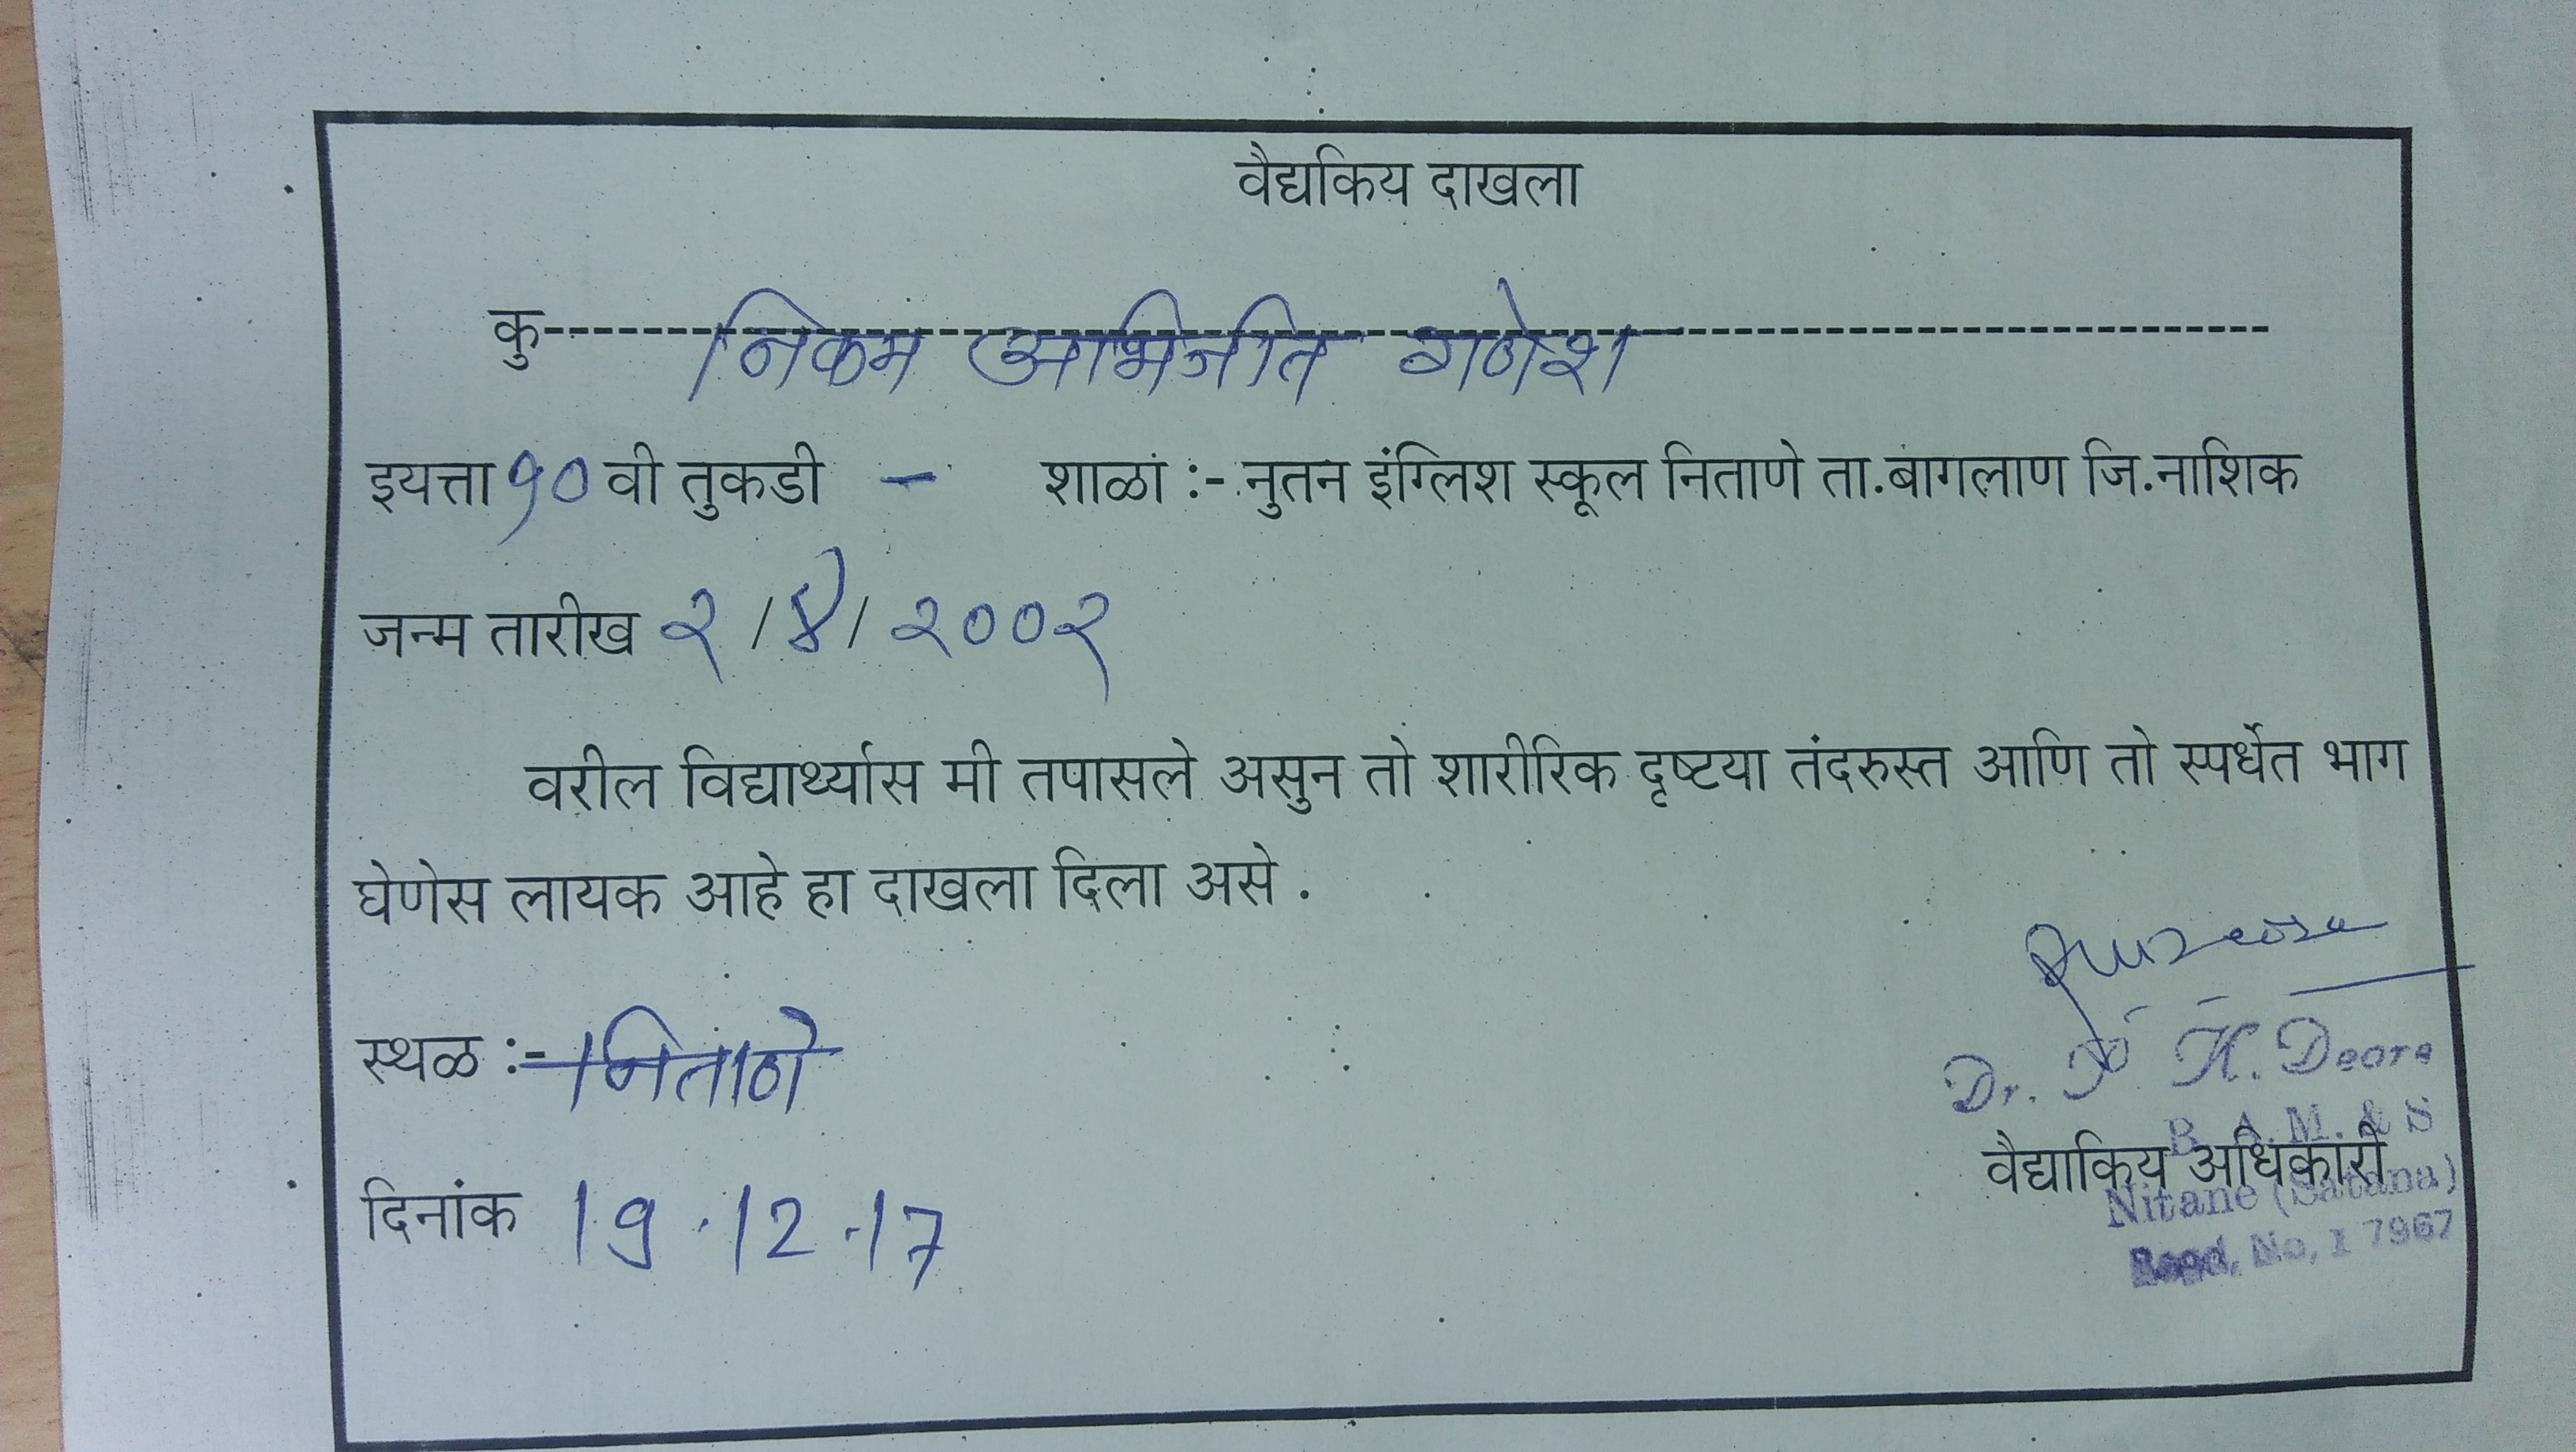 वैद्यकिय दाखला
कु------ निकम अभिजीत गणेश
इयत्ता १० वी तुकडी - शाळा :- नुतन इंग्लिश स्कूल निताणे ता.बागलाण जि.नाशिक
जन्म तारीख २ / ४ / २००२
वरील विद्यार्थ्यास मी तपासले असुन तो शारीरिक दृष्टया तंदरुस्त आणि तो स्पर्धेत भाग
घेणेस लायक आहे हा दाखला दिला असे .
स्थळ :- निताणे
Dr. P. H. Deore
B. A. M. & S
वैद्याकिय अधिकारी
Nitane (Satana)
दिनांक 19.12.17
No, I 7967